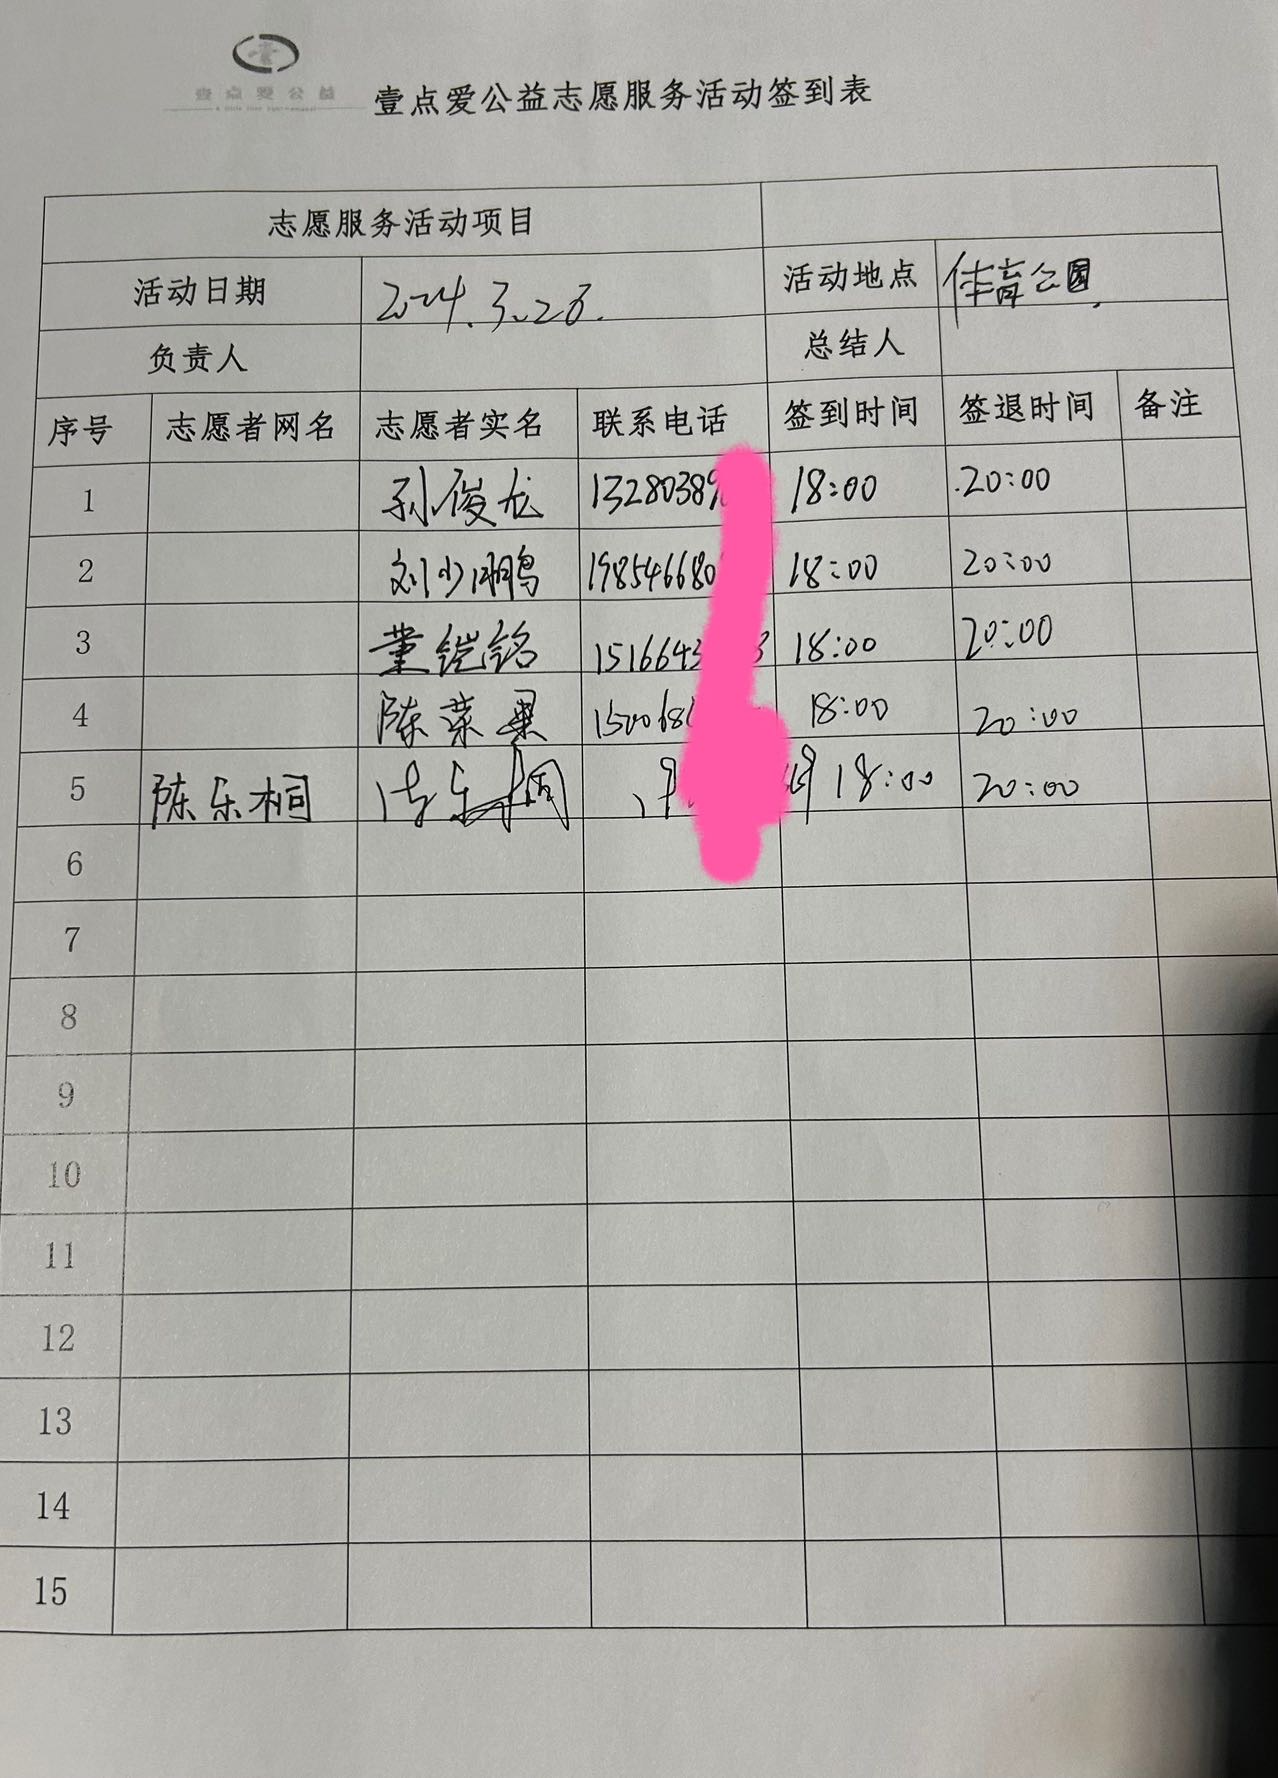 壹点爱公益
壹点爱公益志愿服务活动签到表
志愿服务活动项目
活动日期 2024.3.26. 活动地点 体育公园
负责人 总结人
序号 志愿者网名 志愿者实名 联系电话 签到时间 签退时间 备注
1 孙俊龙 1328038 18:00 20:00
2 刘少鹏 198546680 18:00 20:00
3 董铠铭 1516643 3 18:00 20:00
4 陈菜果 150068 18:00 20:00
5 陈乐桐 18:00 20:00
6
7
8
9
10
11
12
13
14
15